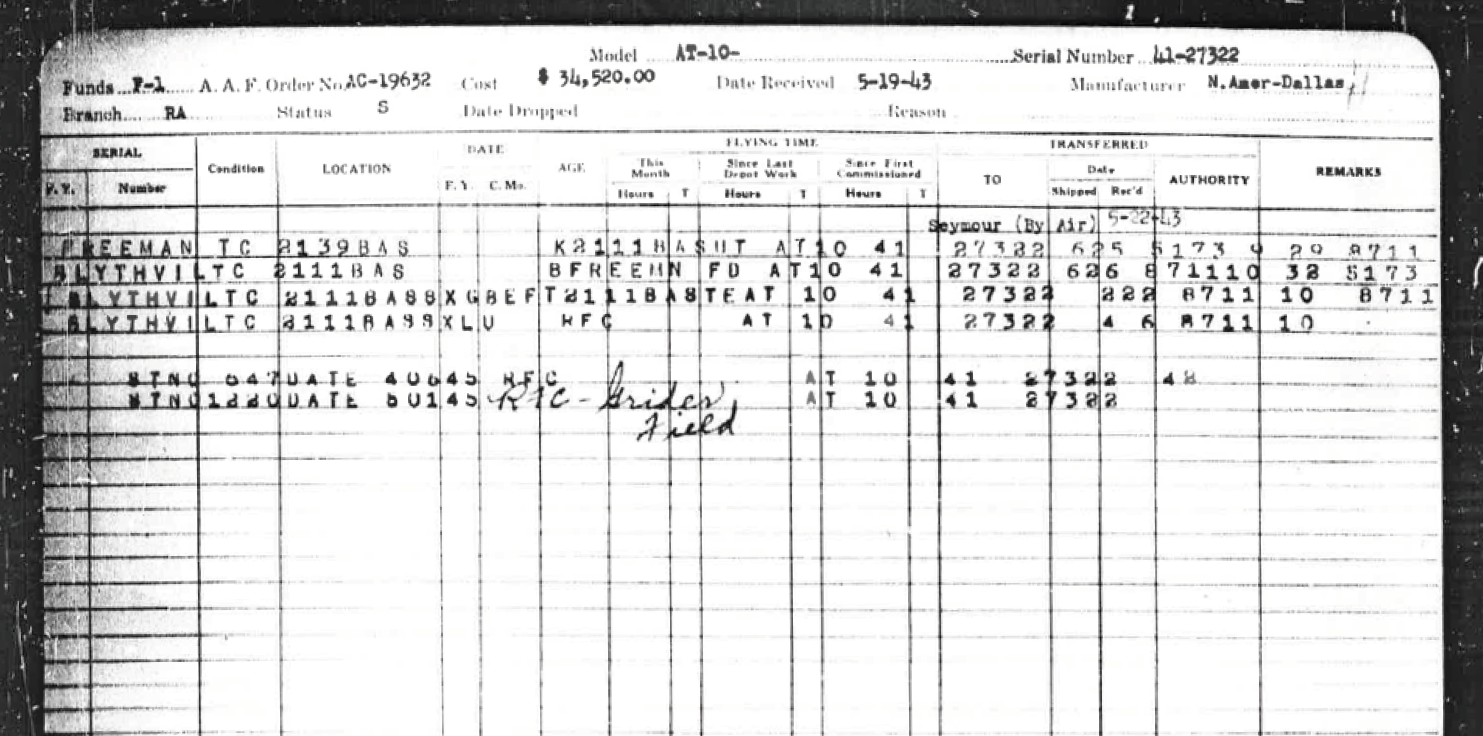 Model AT-10- Serial Number 41-27322
Funds F-1 A. A. F. Order No. AC-19632 Cost $ 34,520.00 Date Received 5-19-43 Manufacturer N.Amer-Dallas
Branch RA Status S Date Dropped Reason
SERIAL DATE FLYING TIME TRANSFERRED
Condition LOCATION AGE This Month Since Last Depot Work Since First Commissioned TO Date AUTHORITY REMARKS
F.Y. Number F.Y. C.Mo. Hours T Hours T Hours T Shipped Rec'd
Seymour (By Air) 5-22-43
FREEMAN TC 2139BAS K2111BASUT AT10 41 27322 625 5173 9 29 8711
BLYTHVILTC 2111BAS BFREEMN FD AT10 41 27322 626 871110 32 5173
BLYTHVILTC 2111BAS8XGBEFT2111BASTEAT 10 41 27322 222 8711 10 8711
BLYTHVILTC 2111BAS9XLU RFC AT 10 41 27322 4 6 8711 10
STNO 647DATE 40645 RFC AT 10 41 27322 48
STNO1220DATE 50145 RFC - Grider AT 10 41 27322
Field